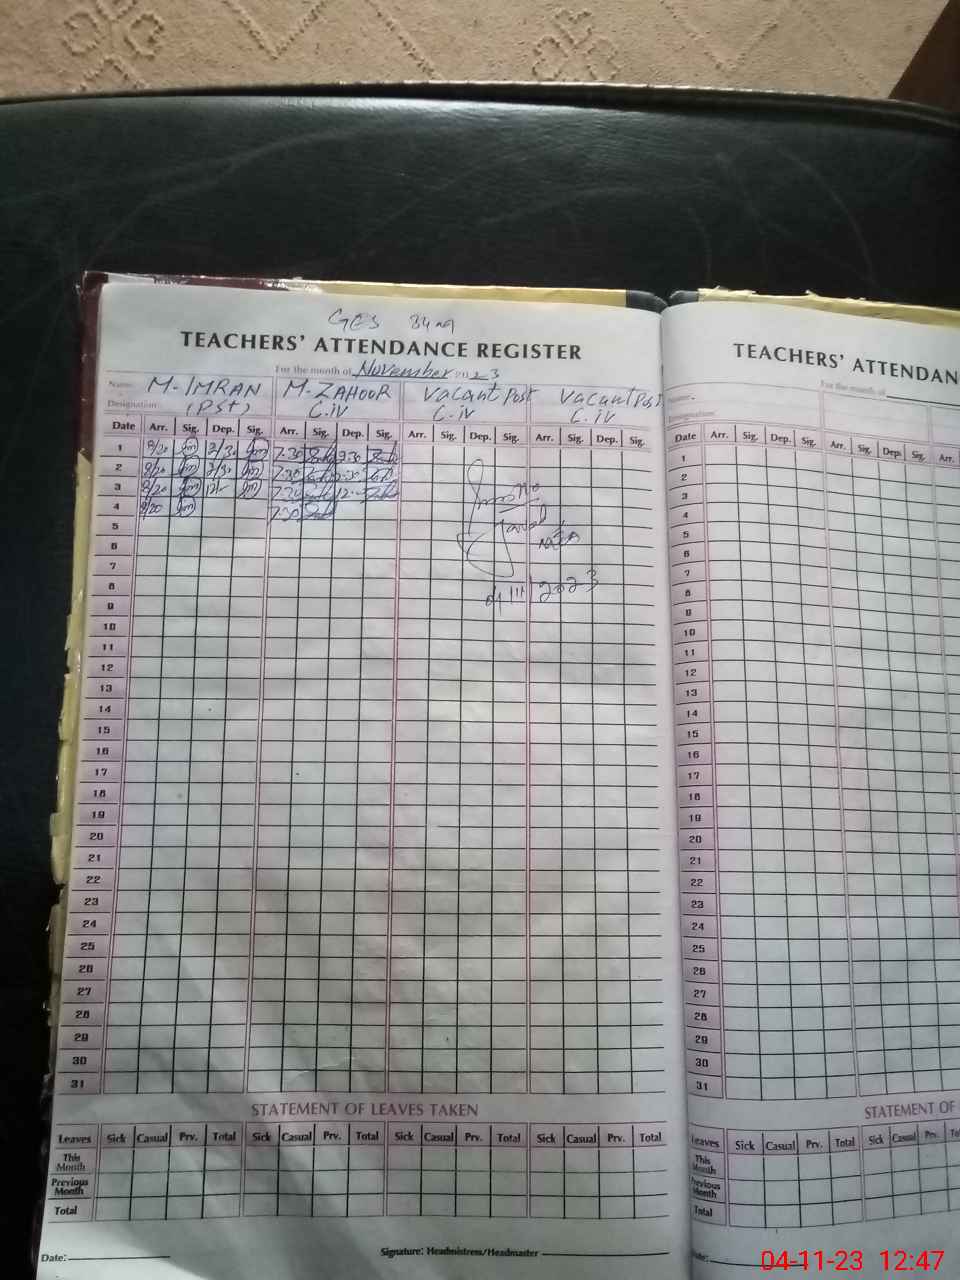 GES 84 
TEACHERS' ATTENDANCE REGISTER
For the month of November 2023
Name: M. IMRAN M. ZAHOOR Vacant Post Vacant Post
Designation: (PST) C.iV C.iV C.iV
Date Arr. Sig. Dep. Sig. Arr. Sig. Dep. Sig. Arr. Sig. Dep. Sig. Arr. Sig. Dep. Sig.
1 8/20 12/30 7.30
2 8/20 12/30 7.30
3 8/20 12/- 7.30 12
4 8/20 7.30
5
6
7
8
04/11/2023
9
10
11
12
13
14
15
16
17
18
19
20
21
22
23
24
25
26
27
28
29
30
31
STATEMENT OF LEAVES TAKEN
Leaves Sick Casual Prv. Total Sick Casual Prv. Total Sick Casual Prv. Total Sick Casual Prv. Total
This Month
Previous Month
Total
Date: Signature: Headmistress/Headmaster
TEACHERS' ATTENDAN
For the month of
Name:
Designation:
Date Arr. Sig. Dep. Sig. Arr. Sig. Dep. Sig. Arr.
1
2
3
4
5
6
7
8
9
10
11
12
13
14
15
16
17
18
19
20
21
22
23
24
25
26
27
28
29
30
31
STATEMENT OF
Leaves Sick Casual Prv. Total Sick Casual Prv. Tot
This Month
Previous Month
Total
Date:
04-11-23 12:47